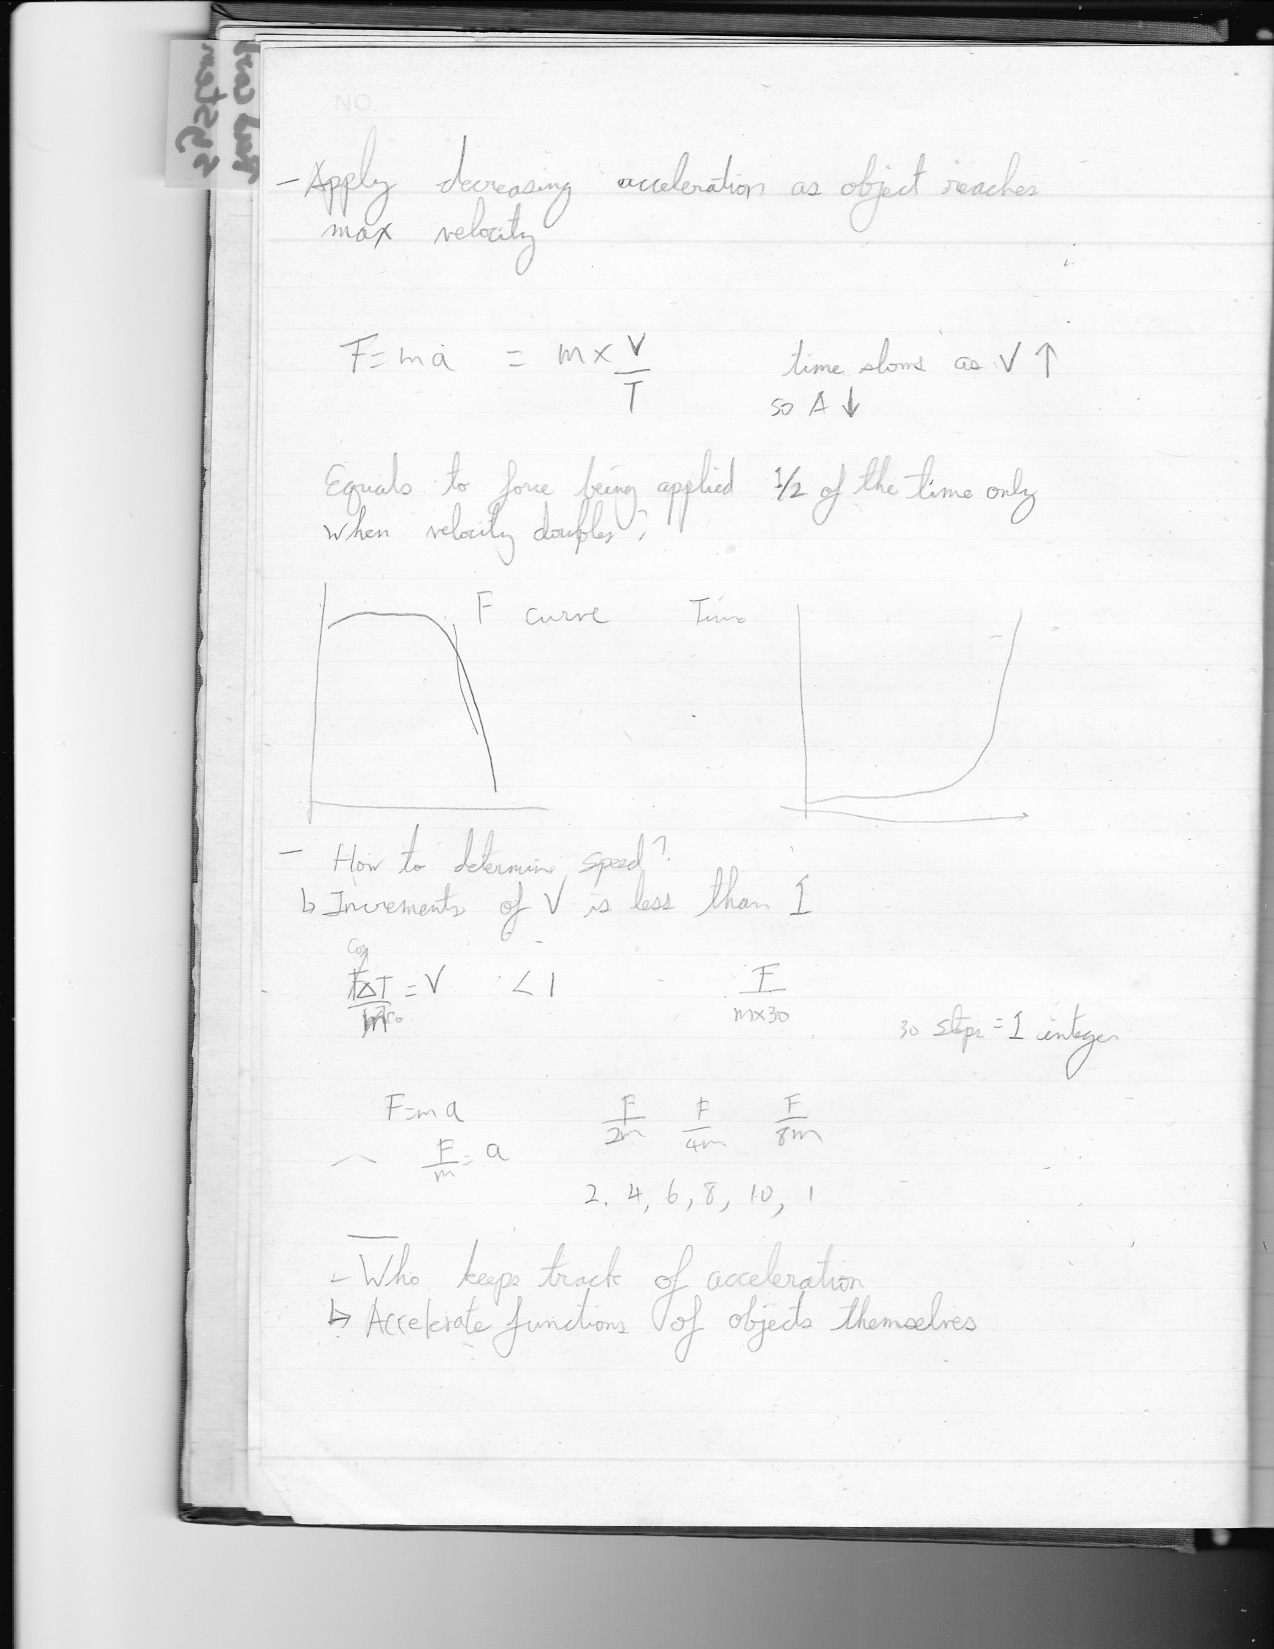 - Apply decreasing acceleration as object reaches
max velocity
F=ma = m x V/T
time slows as V ↑
so A ↓
Equals to force being applied 1/2 of the time only
when velocity doubles?
F curve
Time
- How to determine speed?
↳ Increments of V is less than 1
= V < 1
F/m x 30
30 steps = 1 integer
F=ma
F/2m F/4m F/8m
F/m = a
2, 4, 6, 8, 10, 1
- Who keeps track of acceleration
↳ Accelerate functions of objects themselves
System